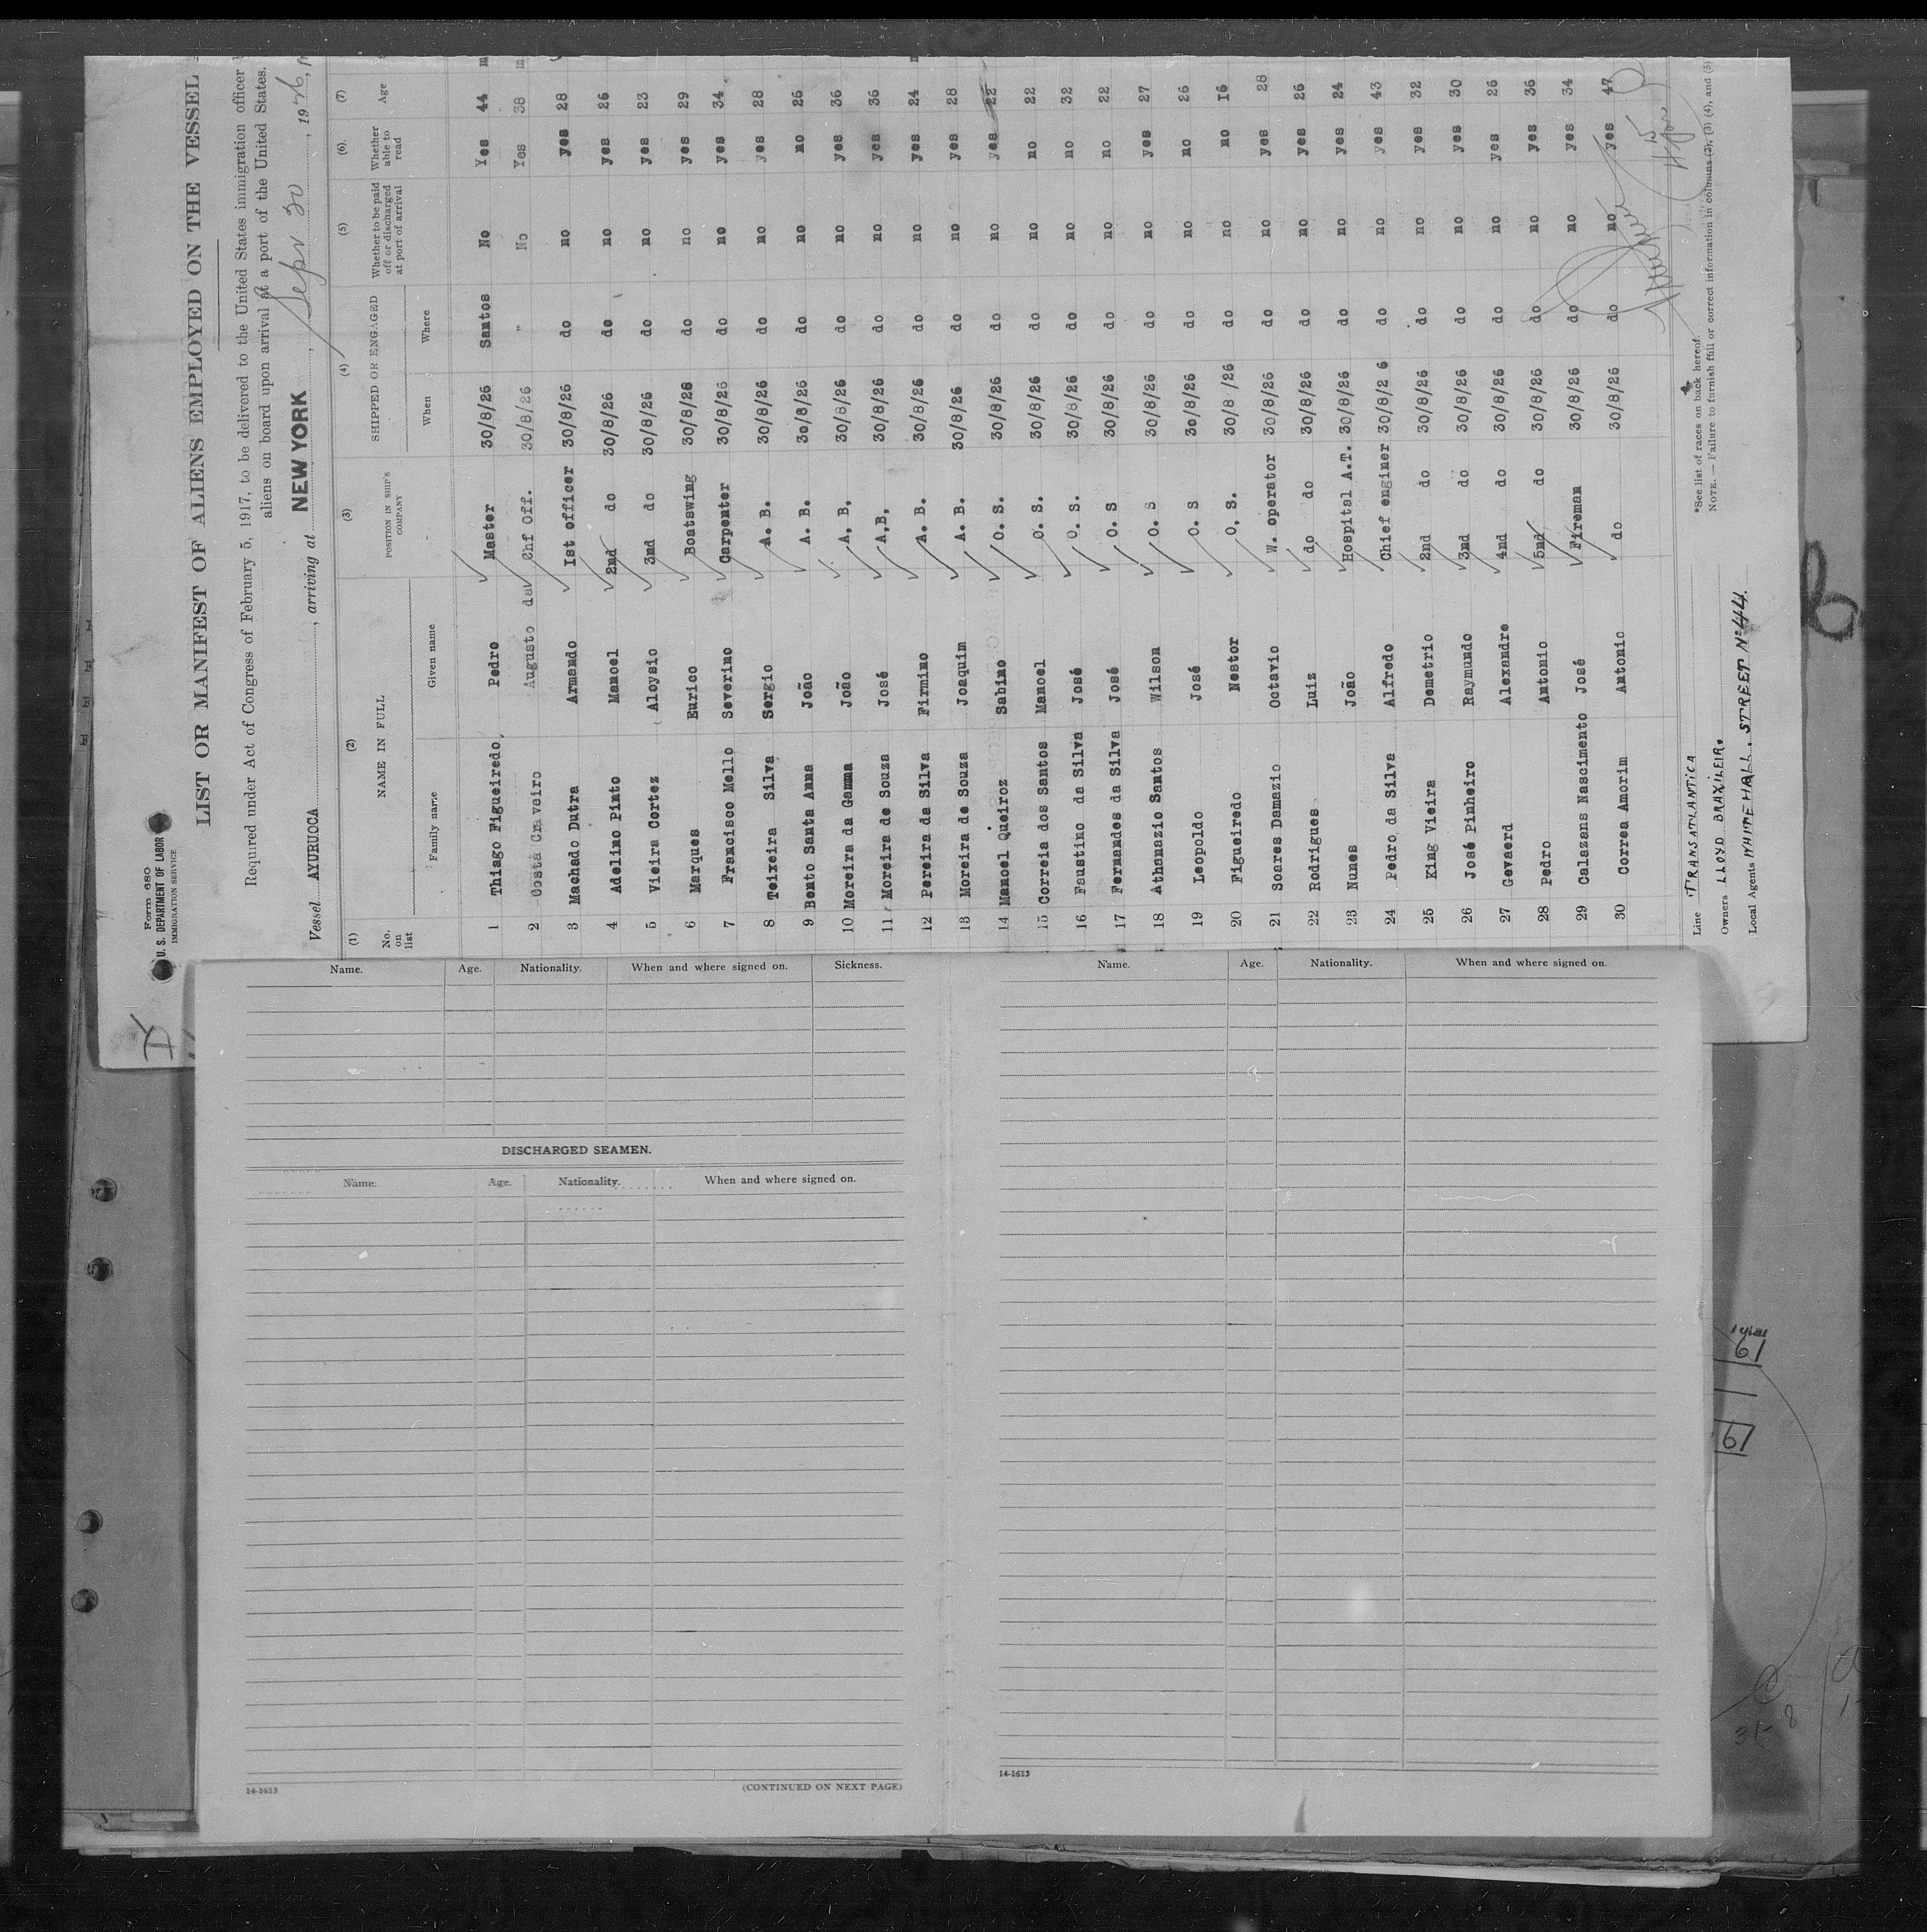 Form 680
U. S. DEPARTMENT OF LABOR
IMMIGRATION SERVICE
LIST OR MANIFEST OF ALIENS EMPLOYED ON THE VESSEL
Required under Act of Congress of February 5, 1917, to be delivered to the United States immigration officer
aliens on board upon arrival at a port of the United States.
Vessel AYURUOCA, arriving at NEW YORK, Sept 30, 1926,
(1) (2) (3) (4) (5) (6) (7)
No. on list NAME IN FULL POSITION IN SHIP'S COMPANY SHIPPED OR ENGAGED Whether to be paid off or discharged at port of arrival Whether able to read Age
Family name Given name When Where
1 Thiago Figueiredo, Pedro Master 30/8/26 Santos No Yes 44 m
2 Costa Craveiro Augusto da Chf Off. 30/8/26 " No Yes 38 m
3 Machado Dutra Armando Ist officer 30/8/26 do no yes 28
4 Adelino Pinto Manoel 2nd do 30/8/26 do no yes 26
5 Vieira Cortez Aloysio 3nd do 30/8/26 do no yes 23
6 Marques Eurico Boatswing 30/8/26 do no yes 29
7 Francisco Mello Severino Carpenter 30/8/26 do no yes 34
8 Teixeira Silva Sergio A. B. 30/8/26 do no yes 28
9 Bento Santa Anna João A. B. 30/8/26 do no no 26
10 Moreira da Gamma João A, B, 30/8/26 do no yes 36
11 Moreira de Souza José A,B, 30/8/26 do no yes 36
12 Pereira da Silva Firmino A. B. 30/8/26 do no yes 24
13 Moreira de Souza Joaquim A. B. 30/8/26 do no yes 28
14 Manoel Queiroz Sabino O. S. 30/8/26 do no yes 22
15 Correia dos Santos Manoel O. S. 30/8/26 do no no 22
16 Faustino da Silva José O. S. 30/8/26 do no no 32
17 Fernandes da Silva José O. S 30/8/26 do no no 22
18 Athanazio Santos Wilson O. S 30/8/26 do no yes 27
19 Leopoldo José O. S 30/8/26 do no no 26
20 Figueiredo Nestor O, S. 30/8/26 do no no I6
21 Soares Damazio Octavio W. operator 30/8/26 do no yes 28
22 Rodrigues Luiz do do 30/8/26 do no yes 26
23 Nunes João Hospital A.T. 30/8/26 do no yes 24
24 Pedro da Silva Alfredo Chief enginer 30/8/2 6 do no yes 43
25 King Vieira Demetrio 2nd do 30/8/26 do no yes 32
26 José Pinheiro Raymundo 3nd do 30/8/26 do no yes 30
27 Gevaerd Alexandre 4nd do 30/8/26 do no yes 26
28 Pedro Antonio 5nd do 30/8/26 do no yes 36
29 Calazans Nascimento José Fireman 30/8/26 do no yes 34
30 Correa Amorim Antonio do 30/8/26 do no yes 47
Line TRANSATLANTICA
Owners LLOYD BRAZILEIRO
Local Agents WHITEHALL. STREET Nº 44.
*See list of races on back hereof.
NOTE.—Failure to furnish full or correct information in columns (2), (3) (4), and (5)
Name. Age. Nationality. When and where signed on. Sickness.
DISCHARGED SEAMEN.
Name. Age. Nationality. When and where signed on.
14-1613 (CONTINUED ON NEXT PAGE)
Name. Age. Nationality. When and where signed on.
14-1613